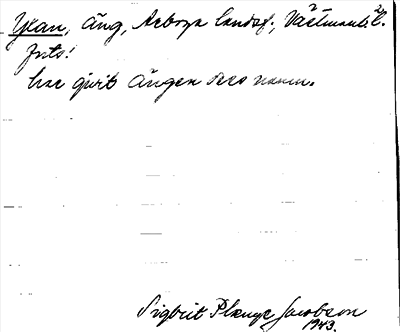 Ykan, äng, Arboga landsf., Västmanl. l.
har givit ängen dess namn.
Sigbrit Plænge Jacobson
1943.